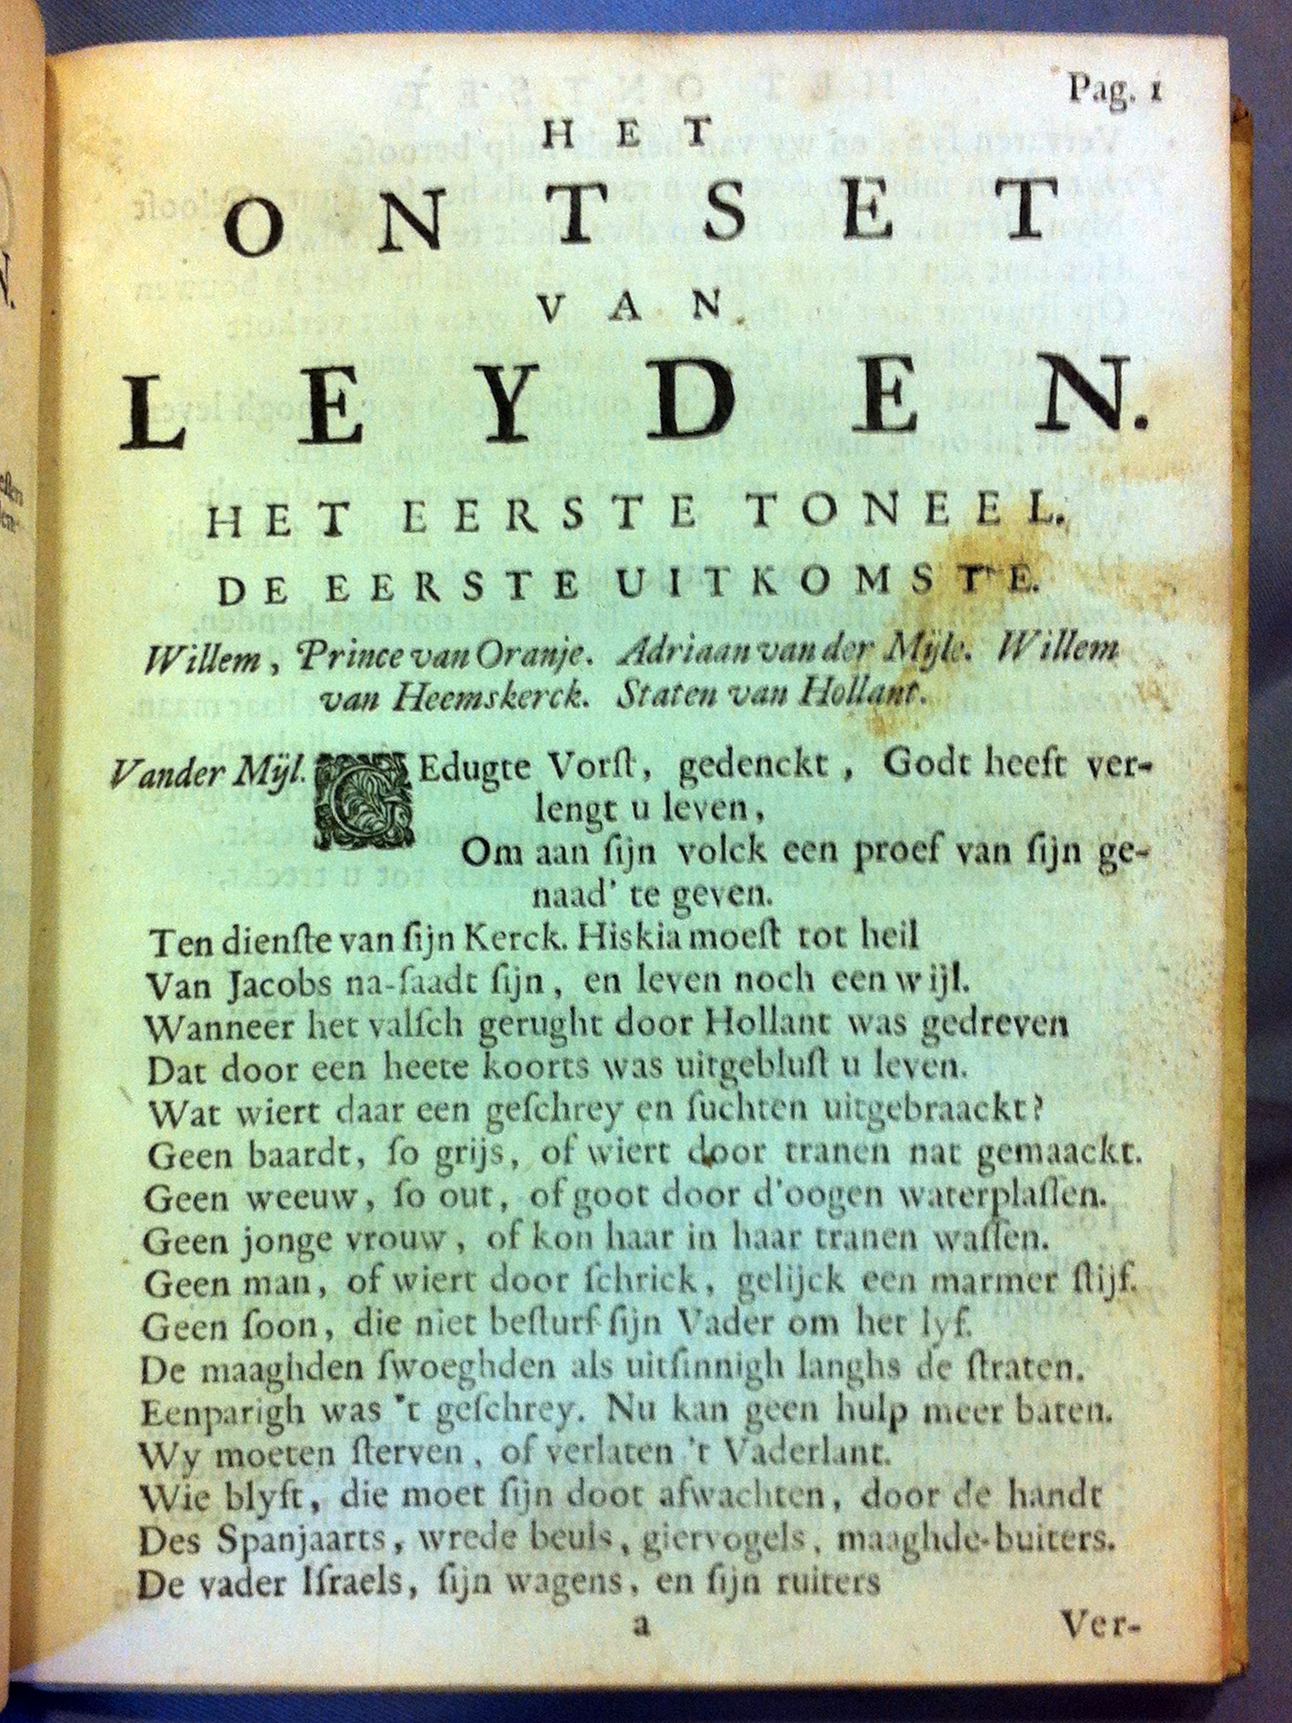 Pag. 1
HET
ONTSET
VAN
LEYDEN.
HET EERSTE TONEEL.
DE EERSTE UITKOMSTE.
Willem, Prince van Oranje. Adriaan van der Mijle. Willem
van Heemskerck. Staten van Hollant.
Vander Mijl. GEdugte Vorſt, gedenckt, Godt heeft ver-
lengt u leven,
Om aan ſijn volck een proef van ſijn ge-
naad' te geven.
Ten dienſte van ſijn Kerck. Hiskia moeſt tot heil
Van Jacobs na-ſaadt ſijn, en leven noch een wijl.
Wanneer het valſch gerught door Hollant was gedreven
Dat door een heete koorts was uitgebluſt u leven.
Wat wiert daar een geſchrey en ſuchten uitgebraackt?
Geen baardt, ſo grijs, of wiert door tranen nat gemaackt.
Geen weeuw, ſo out, of goot door d'oogen waterplaſſen.
Geen jonge vrouw, of kon haar in haar tranen waſſen.
Geen man, of wiert door ſchrick, gelijck een marmer ſtijf.
Geen ſoon, die niet beſturf ſijn Vader om het lyf.
De maaghden ſwoeghden als uitſinnigh langhs de ſtraten.
Eenparigh was 't geſchrey. Nu kan geen hulp meer baten.
Wy moeten ſterven, of verlaten 't Vaderlant.
Wie blyft, die moet ſijn doot afwachten, door de handt
Des Spanjaarts, wrede beuls, giervogels, maaghde-buiters.
De vader Iſraels, ſijn wagens, en ſijn ruiters
a Ver-